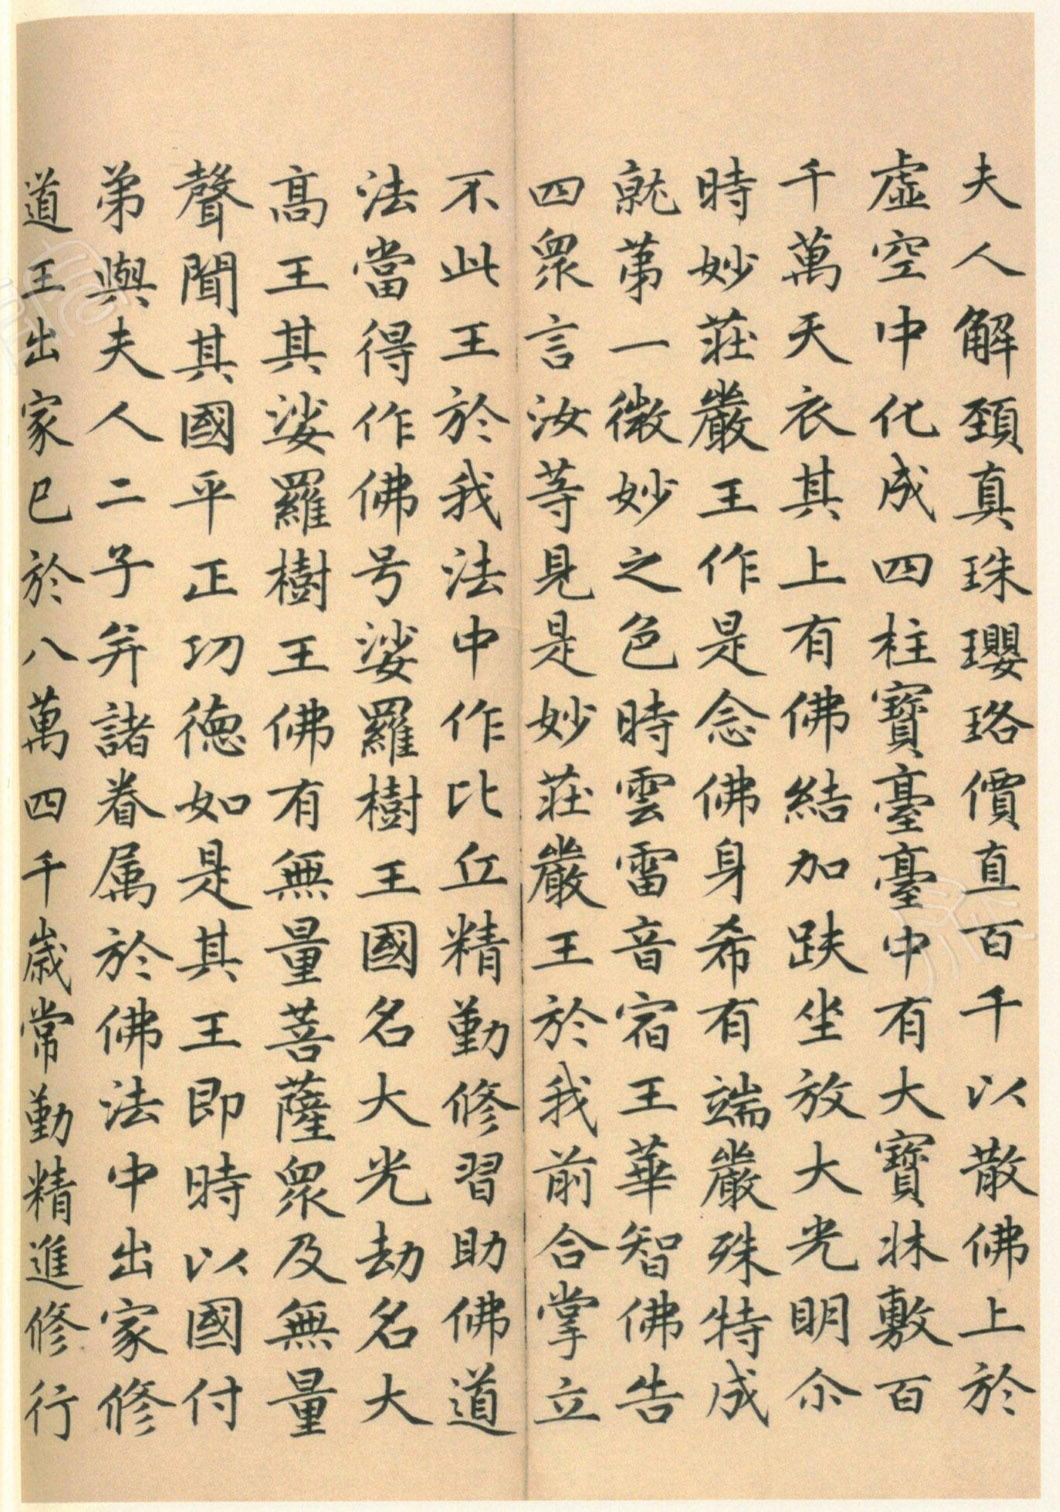 夫人解頚真珠瓔珞價直百千以散佛上於
虛空中化成四柱寶臺臺中有大寶牀敷百
千萬天衣其上有佛結加趺坐放大光明尒
時妙莊嚴王作是念佛身希有端嚴殊特成
就第一微妙之色時雲雷音宿王華智佛告
四眾言汝等見是妙莊嚴王於我前合掌立
不此王於我法中作比丘精勤修習助佛道
法當得作佛号娑羅樹王國名大光劫名大
高王其娑羅樹王佛有無量菩薩眾及無量
聲聞其國平正功德如是其王即時以國付
弟與夫人二子并諸眷属於佛法中出家修
道王出家已於八萬四千歲常勤精進修行